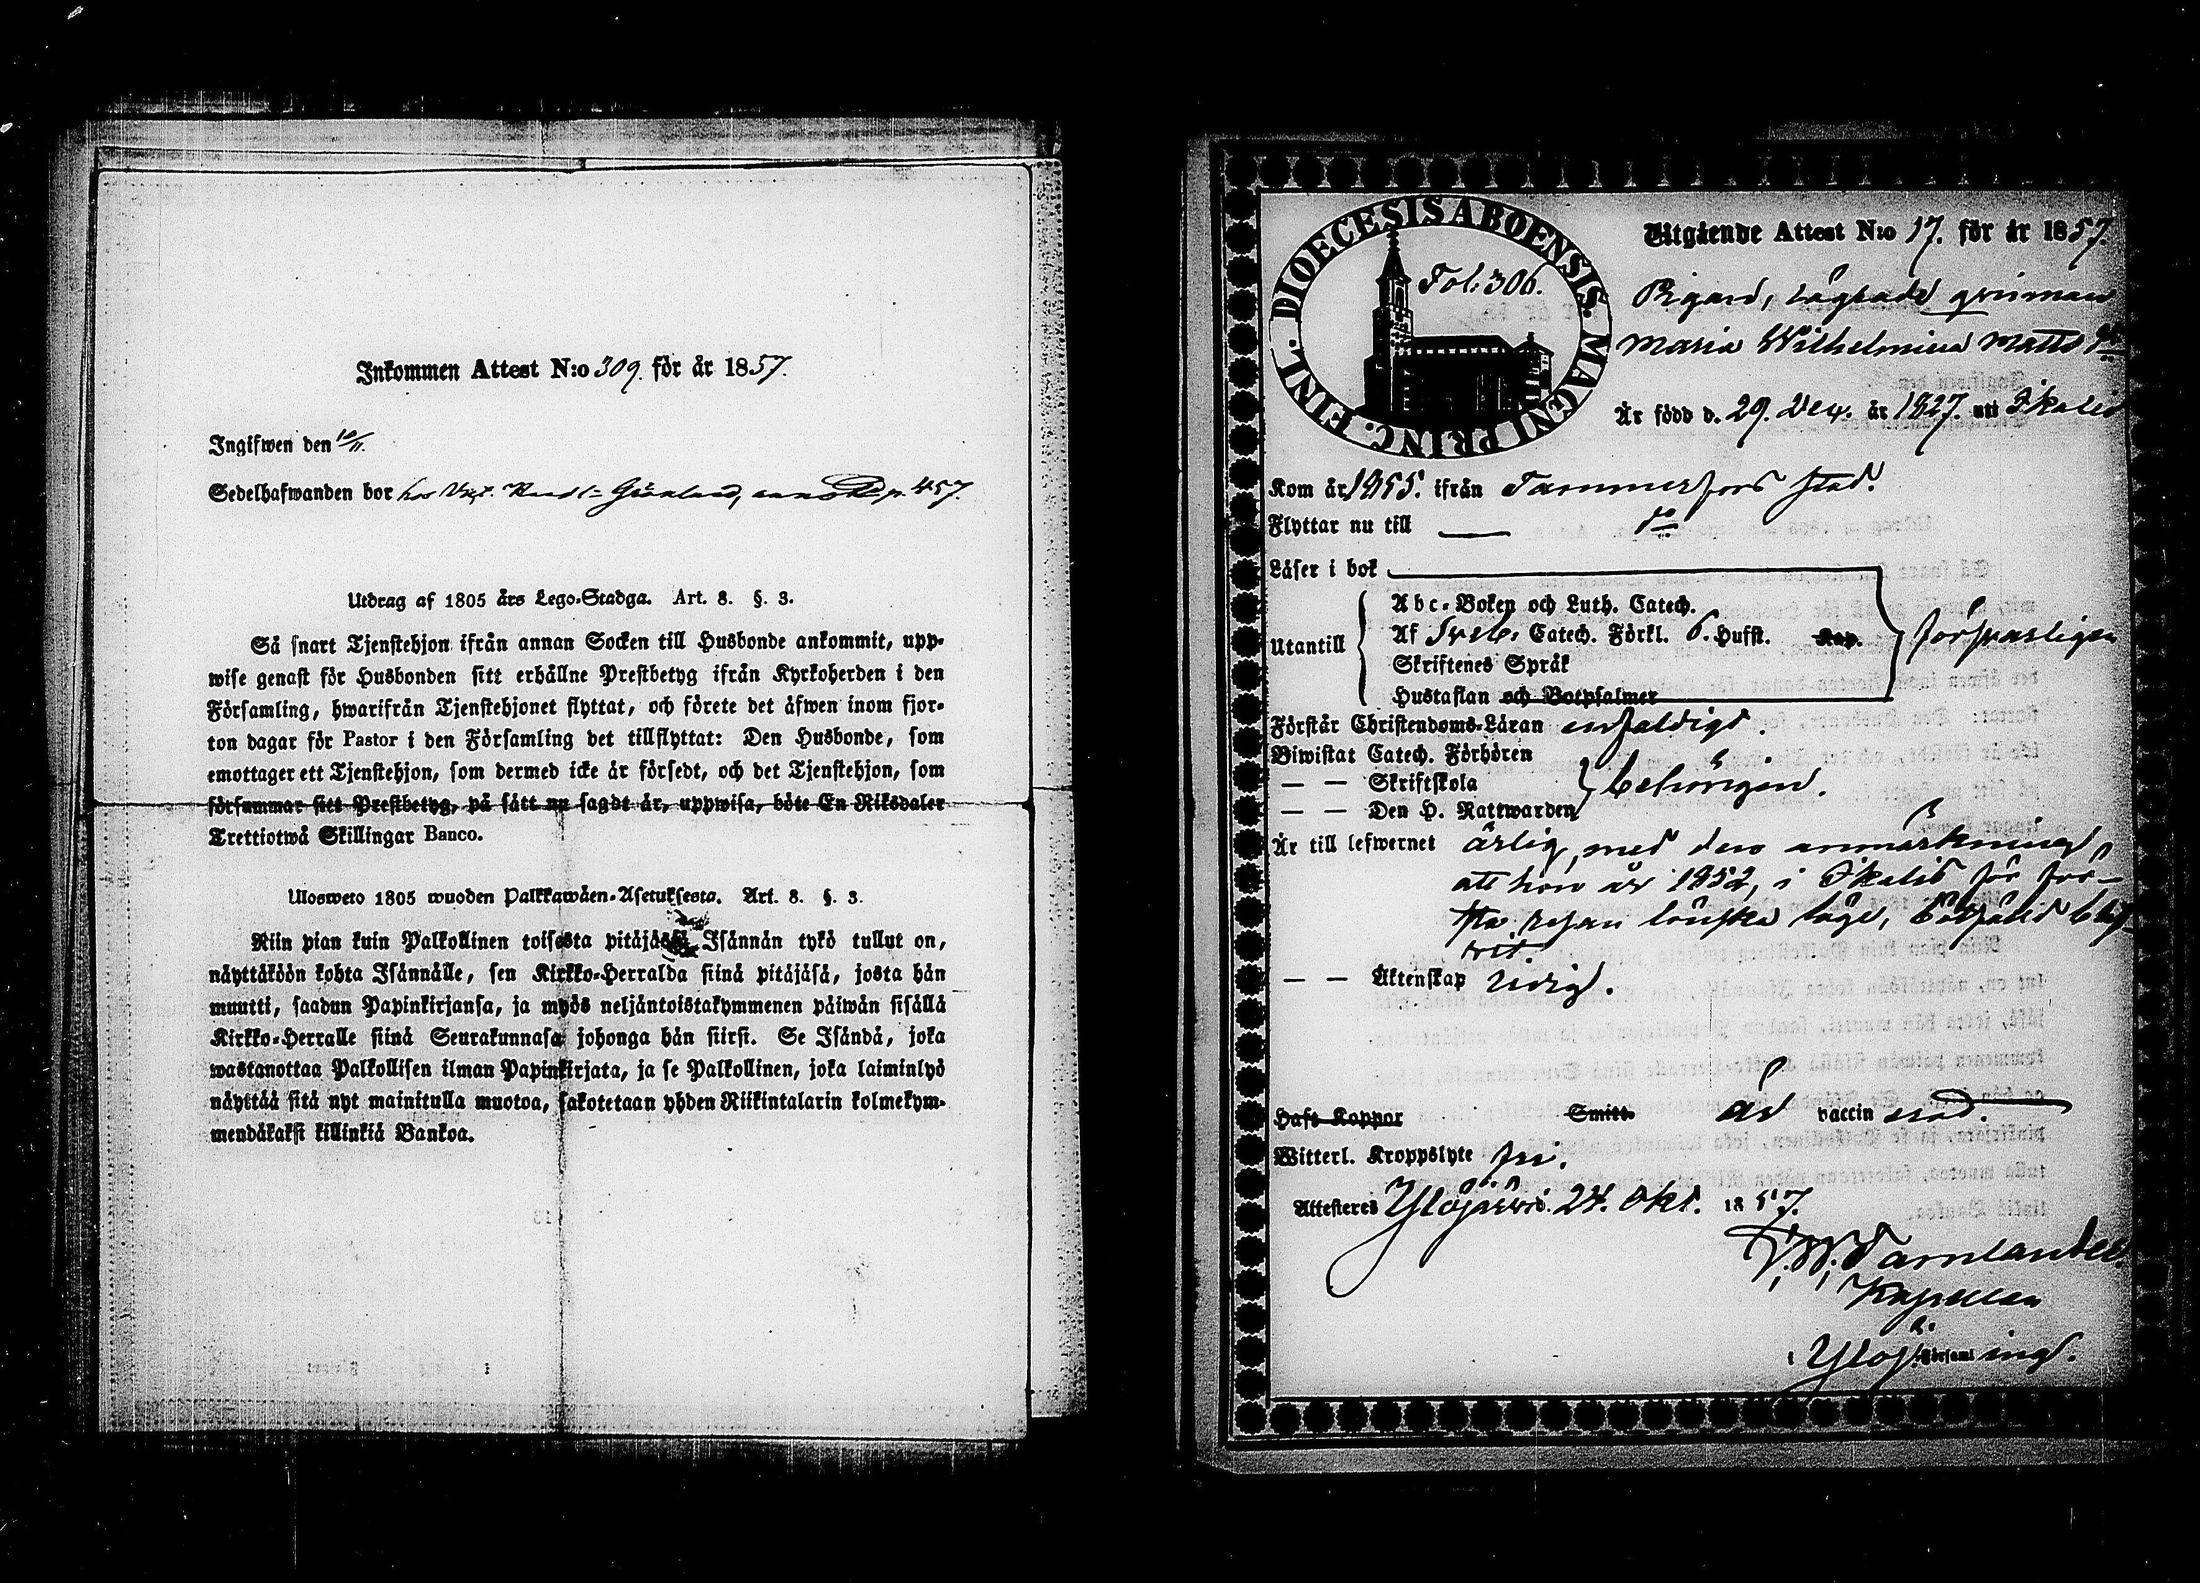 Inkommen Attest N:o 309. för år 1857.
Ingifwen den 10/11.
Sedelhafwanden bor hos Grönlund, p. 457.
Utdrag af 1805 års Lego-Stadga. Art. 8. §. 3.
Så snart Tjenstehjon ifrån annan Socken till Husbonde ankommit, upp-
wise genast för Husbonden sitt erhållne Prestbetyg ifrån Kyrkoherden i den
Församling, hwarifrån Tjenstehjonet flyttat, och förete det äfwen inom fjor-
ton dagar för Pastor i den Församling det tillflyttat: Den Husbonde, som
emottager ett Tjenstehjon, som dermed icke är försedt, och det Tjenstehjon, som
försummar sitt Prestbetyg, på sätt nu sagdt är, uppwisa, böte En Riksdaler
Trettiotwå Skillingar Banco.
Ulosweto 1805 wuoden Palkkawäen-Asetuksesta. Art. 8. §. 3.
Niin pian kuin Palkollinen toisesta pitäjästä Isännän tykö tullut on,
näyttäköön kohta Isännälle, sen Kirkko-Herralda siinä pitäjäsä, josta hän
muutti, saadun Papinkirjansa, ja myös neljäntoistakymmenen päiwän sisällä
Kirkko-Herralle siinä Seurakunnasa johonga hän siirsi. Se Isändä, joka
wastanottaa Palkollisen ilman Papinkirjata, ja se Palkollinen, joka laiminlyö
näyttää sitä nyt mainitulla muotoa, sakotetaan yhden Riikintalarin kolmekym-
mendäkaksi killinkiä Bankoa.
DIOECESIS ABOENSIS. MAGNI PRINC. FINL.
Fol: 306.
Utgående Attest N:o 17. för år 1857.
Pigan, lägrade qvinnan
Maria Wilhelmina Matts dr
Är född d. 29. Dec. år 1827. uti Ikalis
Kom år 1855. ifrån Tammerfors stad.
Flyttar nu till — do
Läser i bok
Utantill
Abc-Boken och Luth. Catech.
Af Sveb. Catech. Förkl. 6. Hufst. Kap.
Skriftenes Språk
Hustaflan och Botpsalmer
försvarligen
Förstår Christendoms-Läran enfaldigt.
Biwistat Catech. Förhören
— — Skriftskola
— — Den H. Nattwarden
behörigen.
Är till lefwernet ärlig, med den anmärkning,
att hon år 1852, i Ikalis för för-
sta resan lönska läge,
— — Äktenskap ledig.
Haft Koppor Smitt- är vaccinerad.
Witterl. Kroppslyte fri.
Attesteres Ylöjärvi. 24. Okt. 1857.
Kapellan
i Ylöj. Församling.